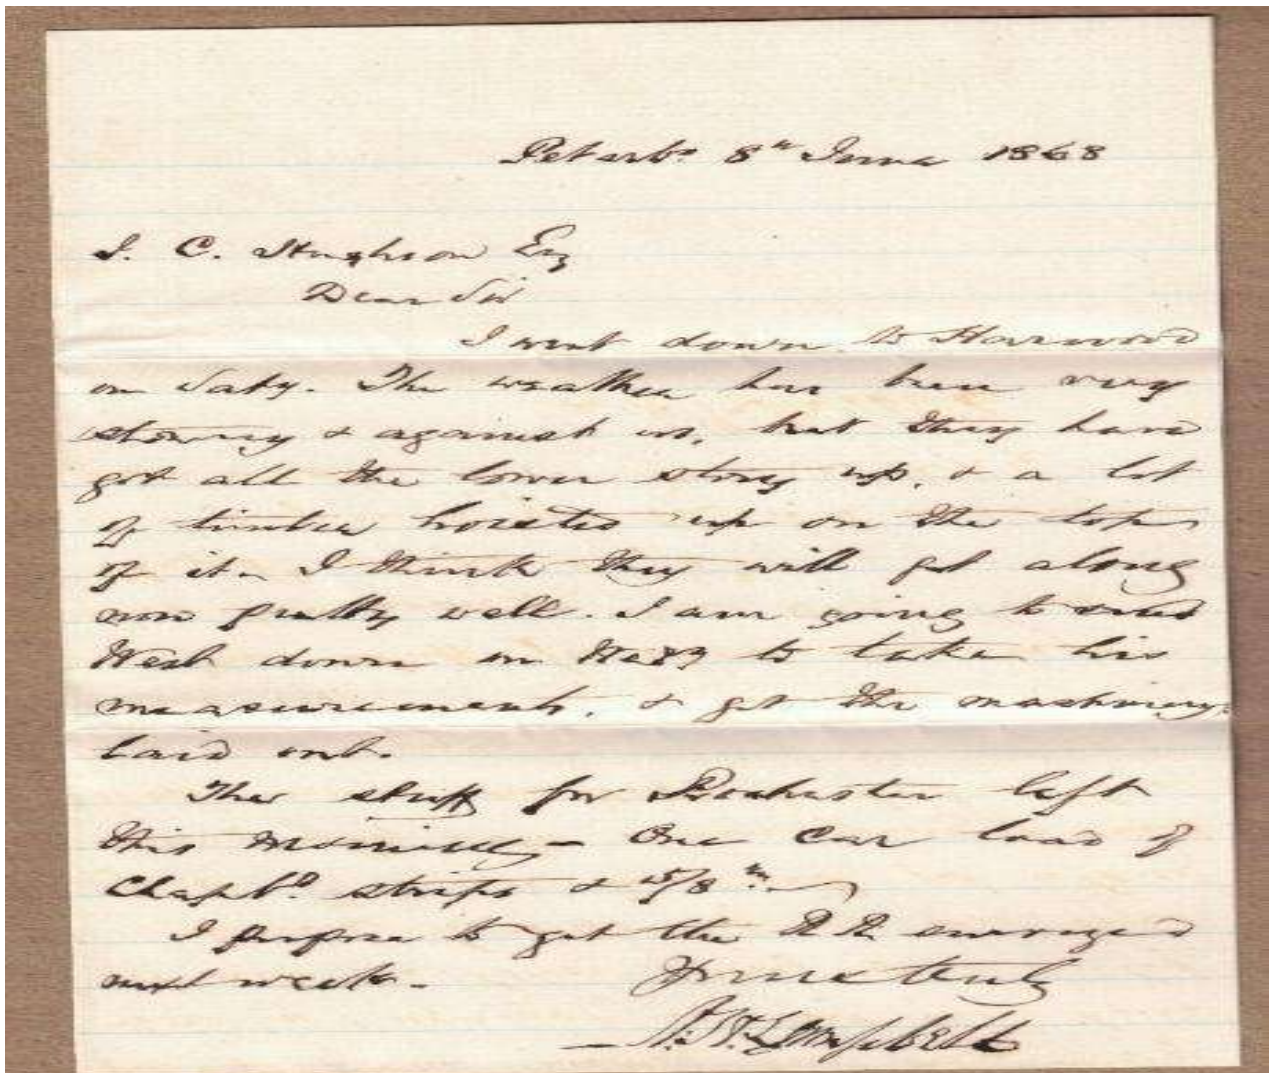 Peterbo. 8th June 1868
J. C. Hughson Esq
Dear Sir
I went down to Harwood
on Saty. The weather has been very
stormy & against us, but they have
got all the lower story up, & a lot
of timber hoisted up on the top
of it. I think they will get along
now pretty well. I am going to send
West down on Wedy to take his
measurements, & get the machinery
laid out.
The stuff for Rochester left
this morning - One car load of
Clapbd. strips & 5/8 in.
I propose to get the R R
next week. - Yours truly
Campbell